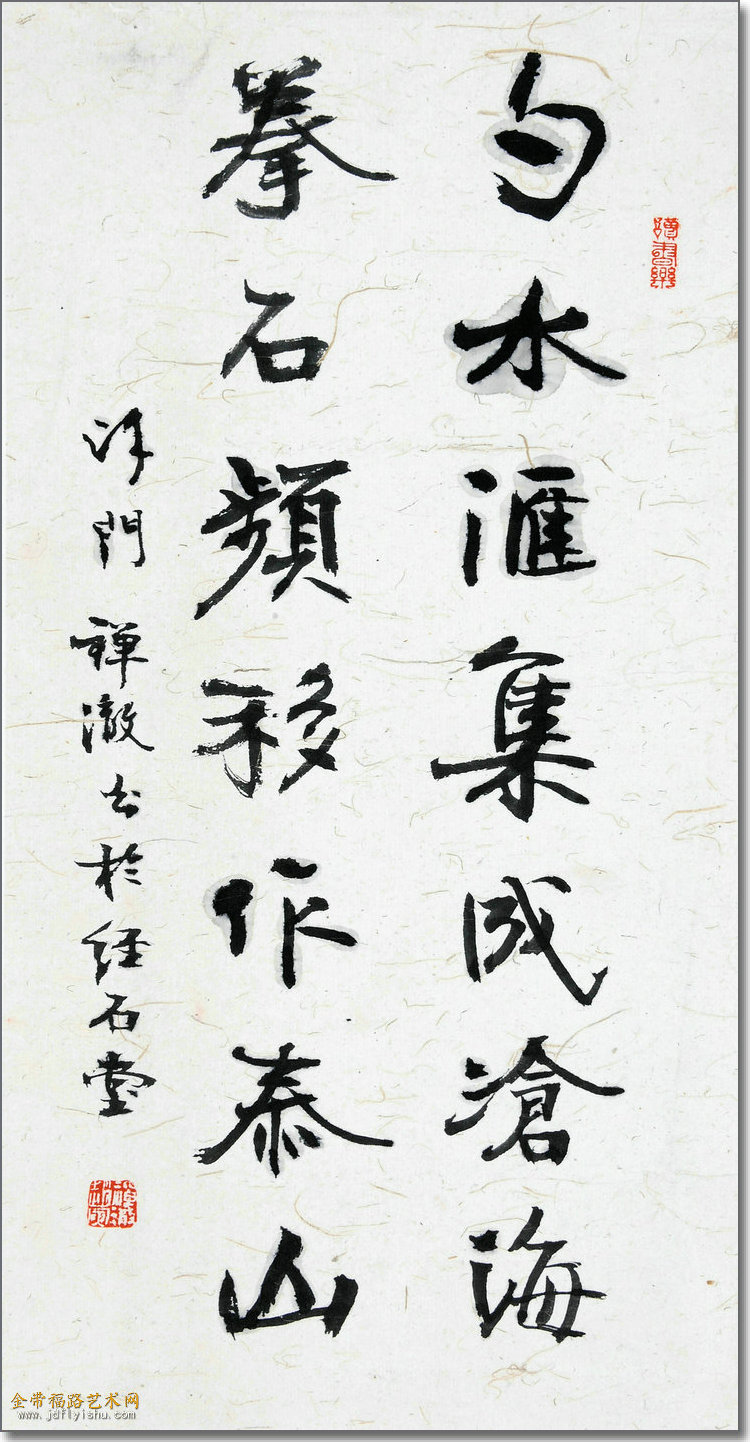 讀書樂
勺水滙集成滄海
拳石頻移作泰山
津門 禪澈书於經石堂
金带福路艺术网
www.jdflyishu.com